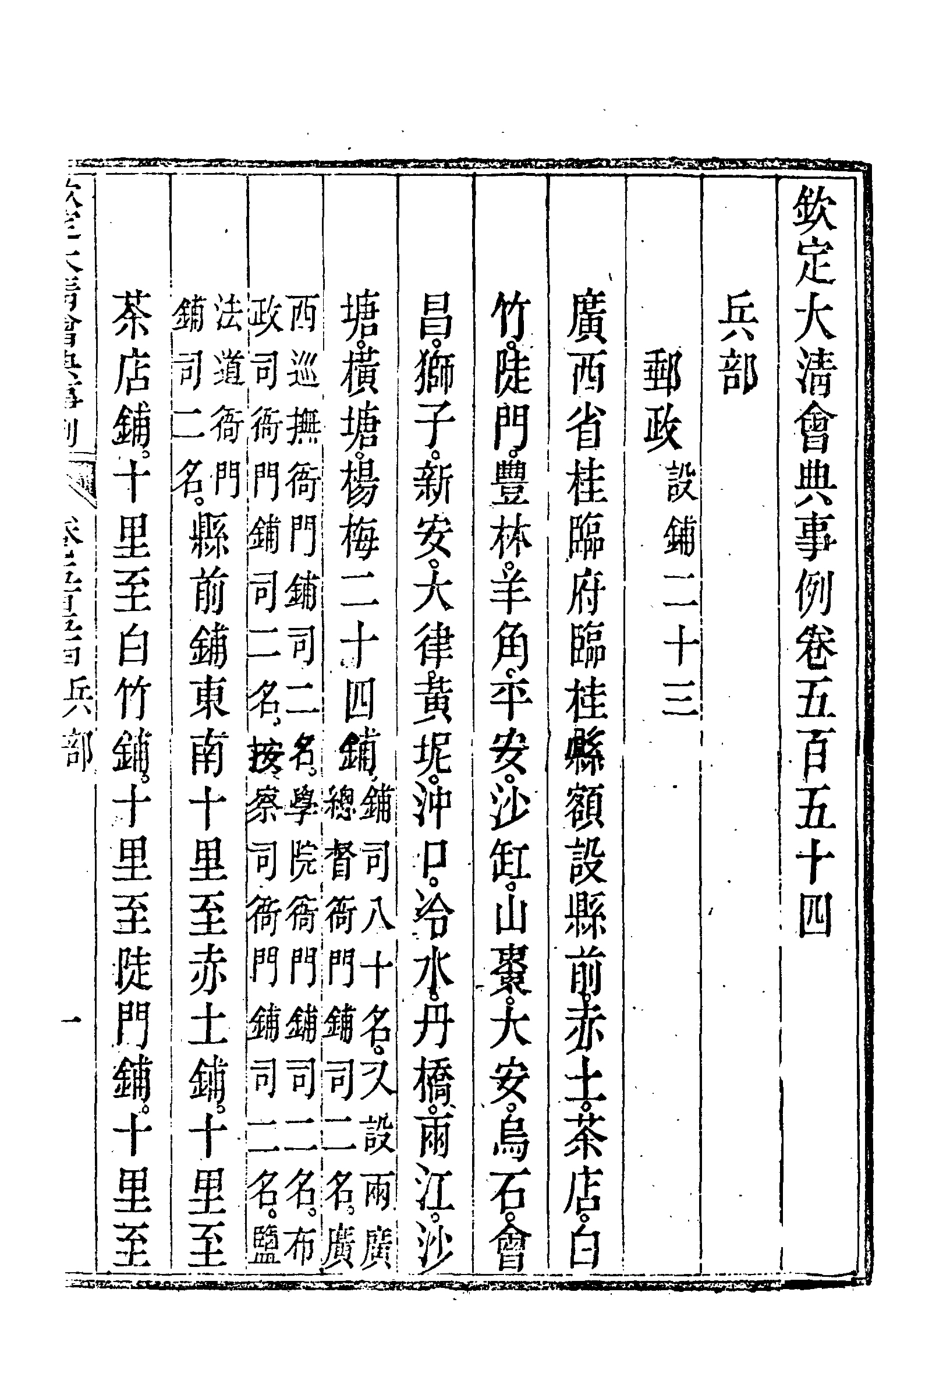 欽定大清會典事例卷五百五十四
兵部
郵政 設鋪二十三
廣西省桂臨府臨桂縣額設縣前。赤土。茶店。白
竹。陡門。豐林。羊角。平安。沙缸。山棗。大安。烏石。會
昌。獅子。新安。大律。黃坭。沖口。冷水。丹橋。兩江。沙
塘。橫塘。楊梅二十四鋪。鋪司八十名。又設兩廣
總督衙門鋪司二名。廣
西巡撫衙門鋪司二名。學院衙門鋪司二名。布
政司衙門鋪司二名。按察司衙門鋪司二名。鹽
法道衙門
鋪司二名。縣前鋪東南十里至赤土鋪。十里至
茶店鋪。十里至白竹鋪。十里至陡門鋪。十里至
欽定大清會典事例 兵部 一